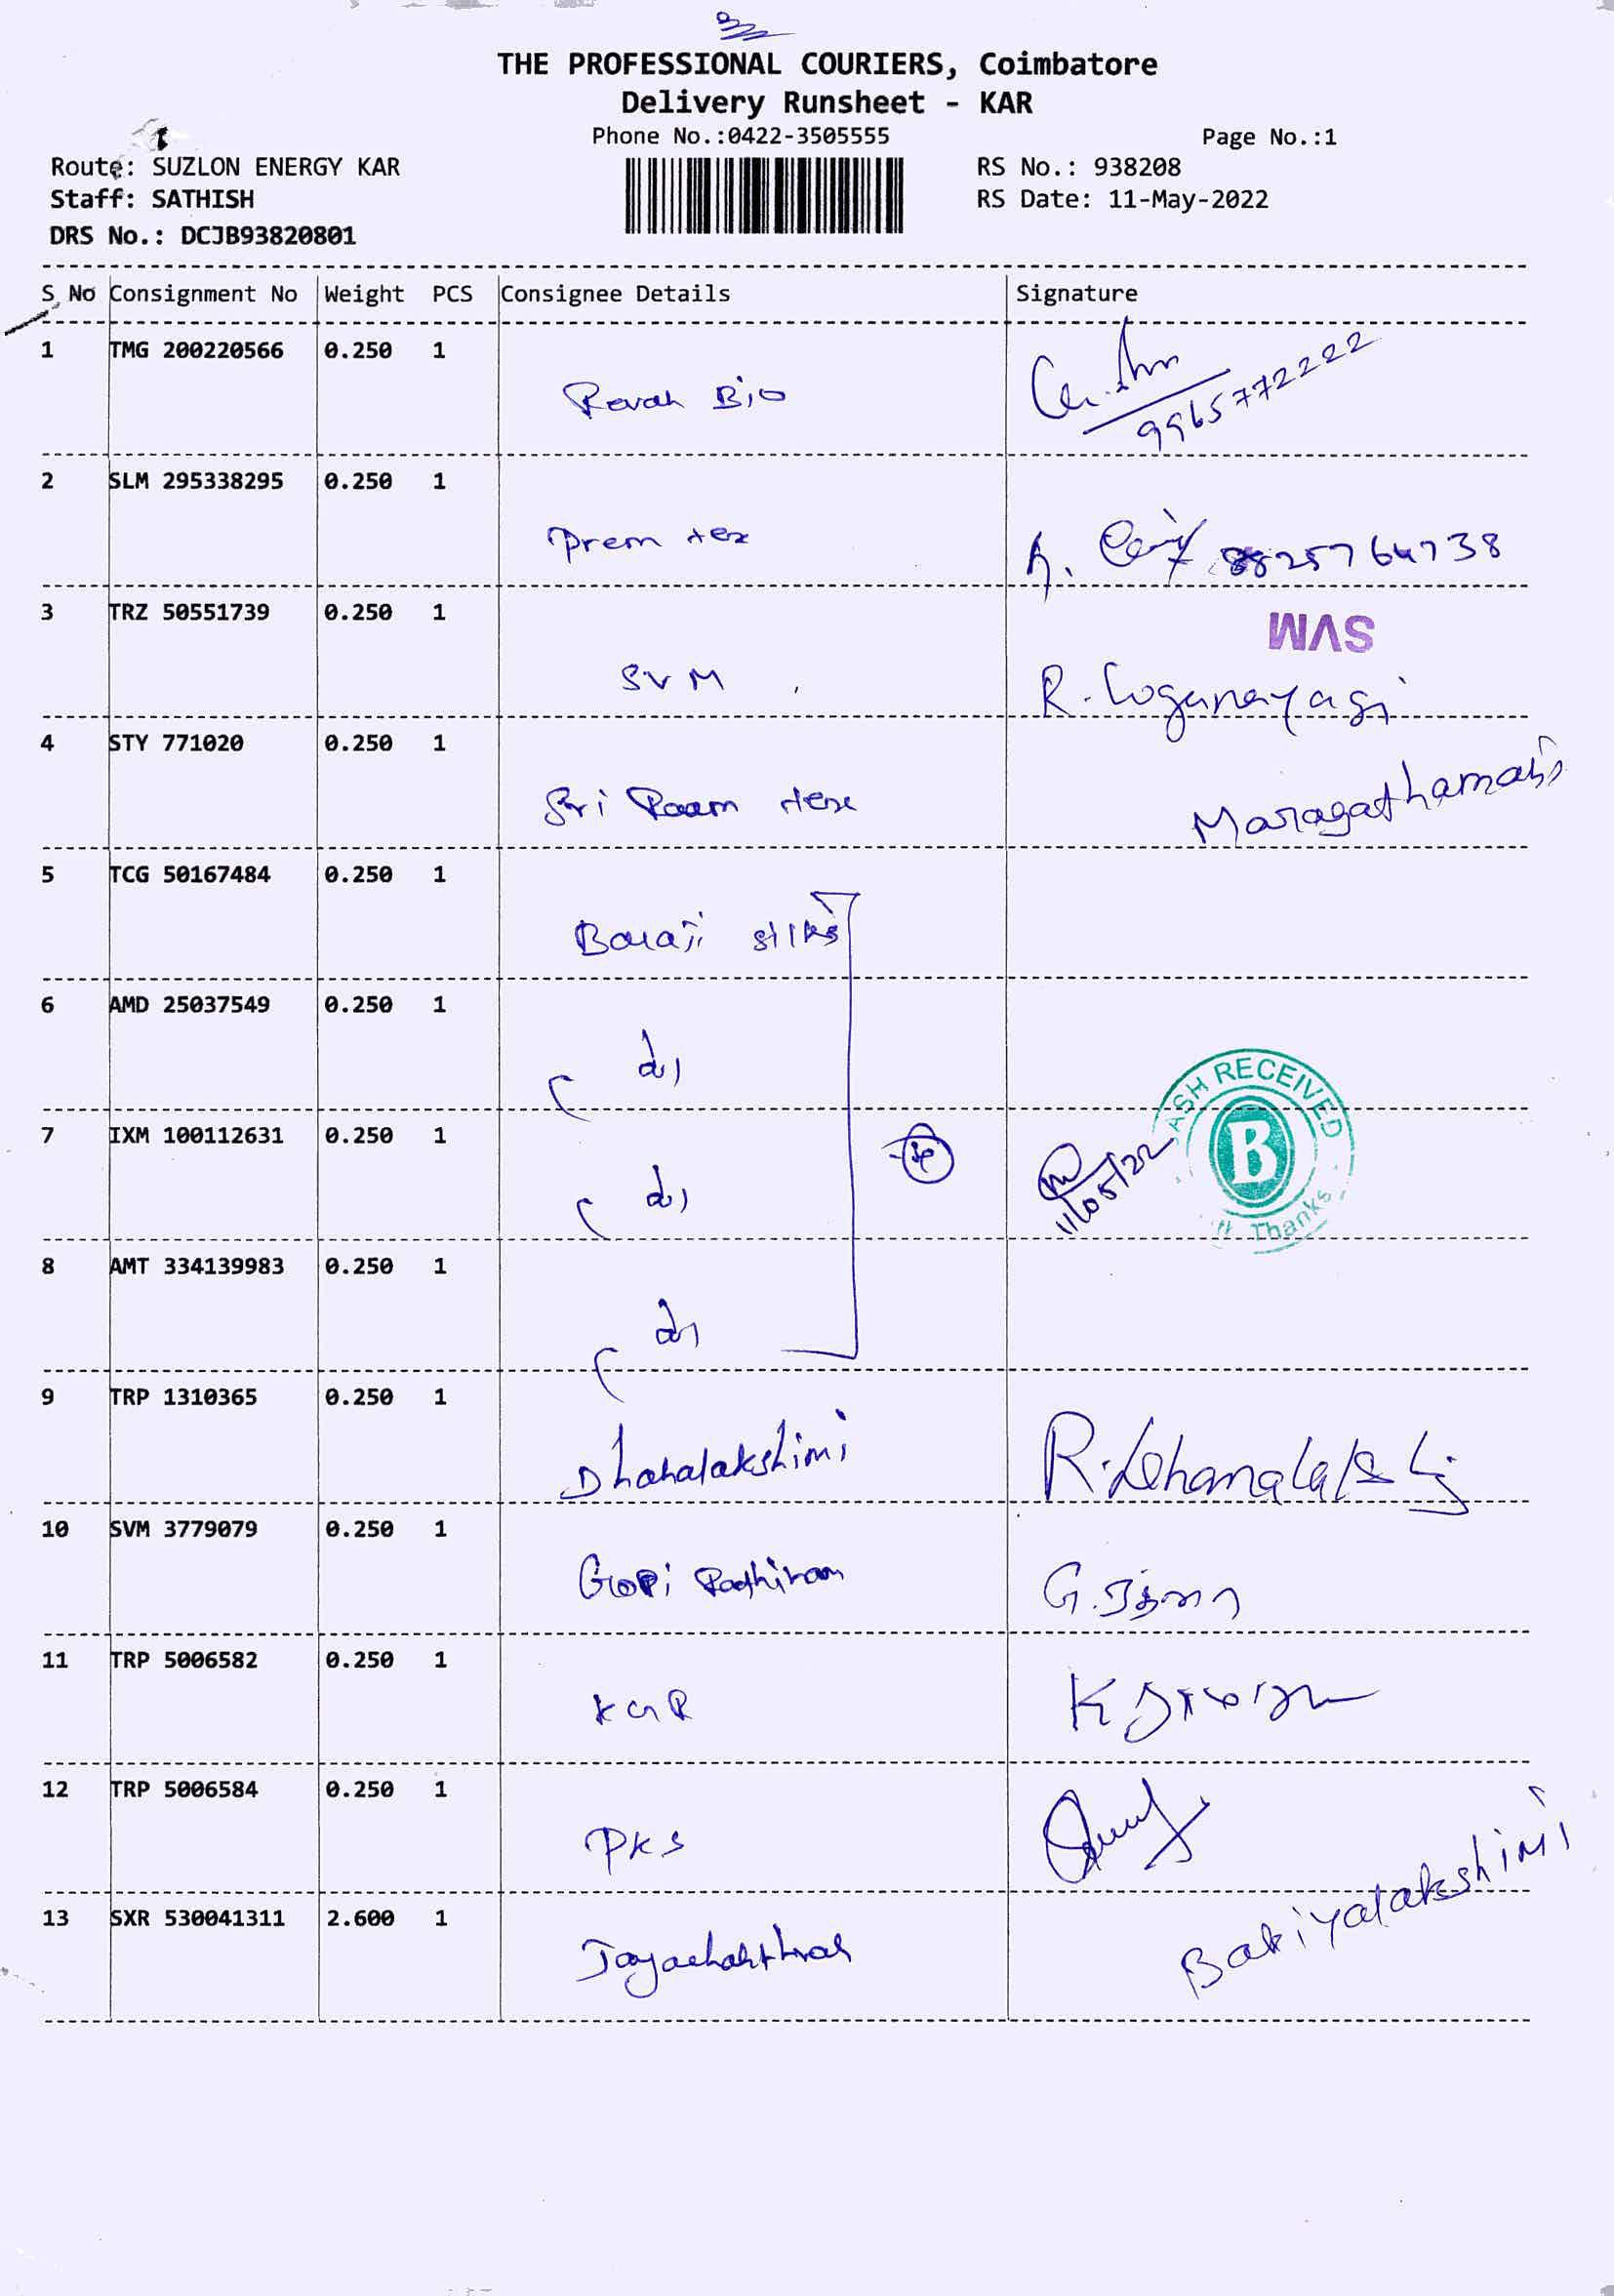 THE PROFESSIONAL COURIERS, Coimbatore
Delivery Runsheet - KAR
Phone No.:0422-3505555 Page No.:1
Route: SUZLON ENERGY KAR RS No.: 938208
Staff: SATHISH RS Date: 11-May-2022
DRS No.: DCJB93820801
S No Consignment No Weight PCS Consignee Details Signature
1 TMG 200220566 0.250 1
Revah Bio
9965772222
2 SLM 295338295 0.250 1
Prem tex 8825764738
3 TRZ 50551739 0.250 1 SVM
SVM R. Loganayagi
4 STY 771020 0.250 1
Sri Raam tex Maragathamani
5 TCG 50167484 0.250 1
Balaji silks
6 AMD 25037549 0.250 1
do
ASH RECEIVED
7 IXM 100112631 0.250 1
B
do 11/05/22
Thanks
8 AMT 334139983 0.250 1
do
9 TRP 1310365 0.250 1
Dhanalakshimi R. Dhanalakshi
10 SVM 3779079 0.250 1
Gopi G.
11 TRP 5006582 0.250 1
KGR K
12 TRP 5006584 0.250 1
PKS
13 SXR 530041311 2.600 1 Bakiyalakshimi